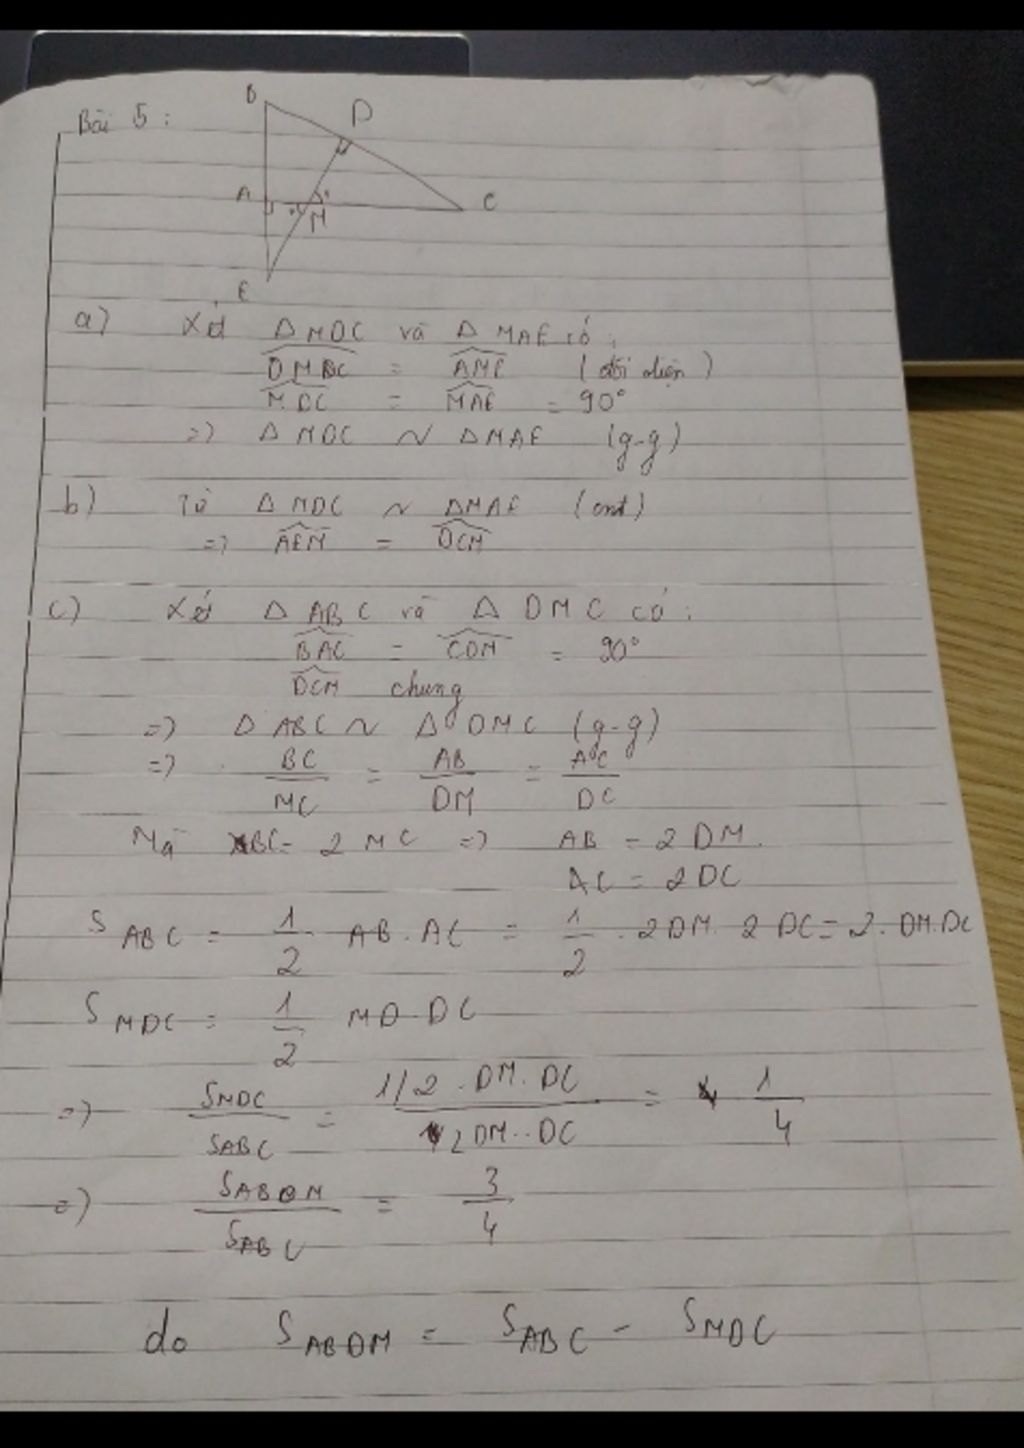 Bài 5 :
B
D
A
M
C
E
a) Xét Δ MDC và Δ MAE có :
DMBC = AME (đối diện)
MDC = MAE = 90°
=) Δ MDC ~ ΔMAE (g-g)
b) Từ Δ MDC ~ ΔMAE (cmt)
=) AEM = DCM
c) Xét Δ ABC và Δ DMC có :
BAC = CDM = 90°
DCM chung
=) Δ ABC ~ Δ DMC (g-g)
=) BC/MC = AB/DM = AC/DC
Mà BC = 2 MC =) AB = 2 DM
AC = 2DC
S ABC = 1/2 . AB . AC = 1/2 . 2DM . 2 DC = 2 . DM.DC
S MDC = 1/2 MD DC
=) SMDC/SABC = 1/2 . DM . DC / 2DM..DC = 1/4
=) SABDM/SABC = 3/4
do SABDM = SABC - SMDC